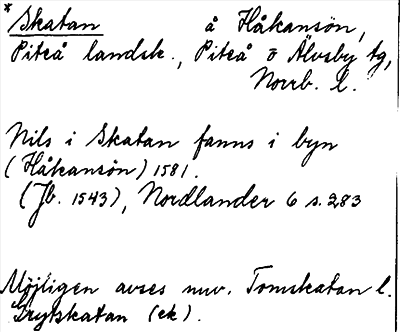 * Skatan å Håkansön,
Piteå landsk., Piteå o Älvsby tg,
Norrb. l.
Nils i Skatan fanns i byn
(Håkansön) 1581.
(Jb. 1543), Nordlander 6 s. 283
Möjligen avses nuv. Tomskatan l.
Grytskatan (ek).